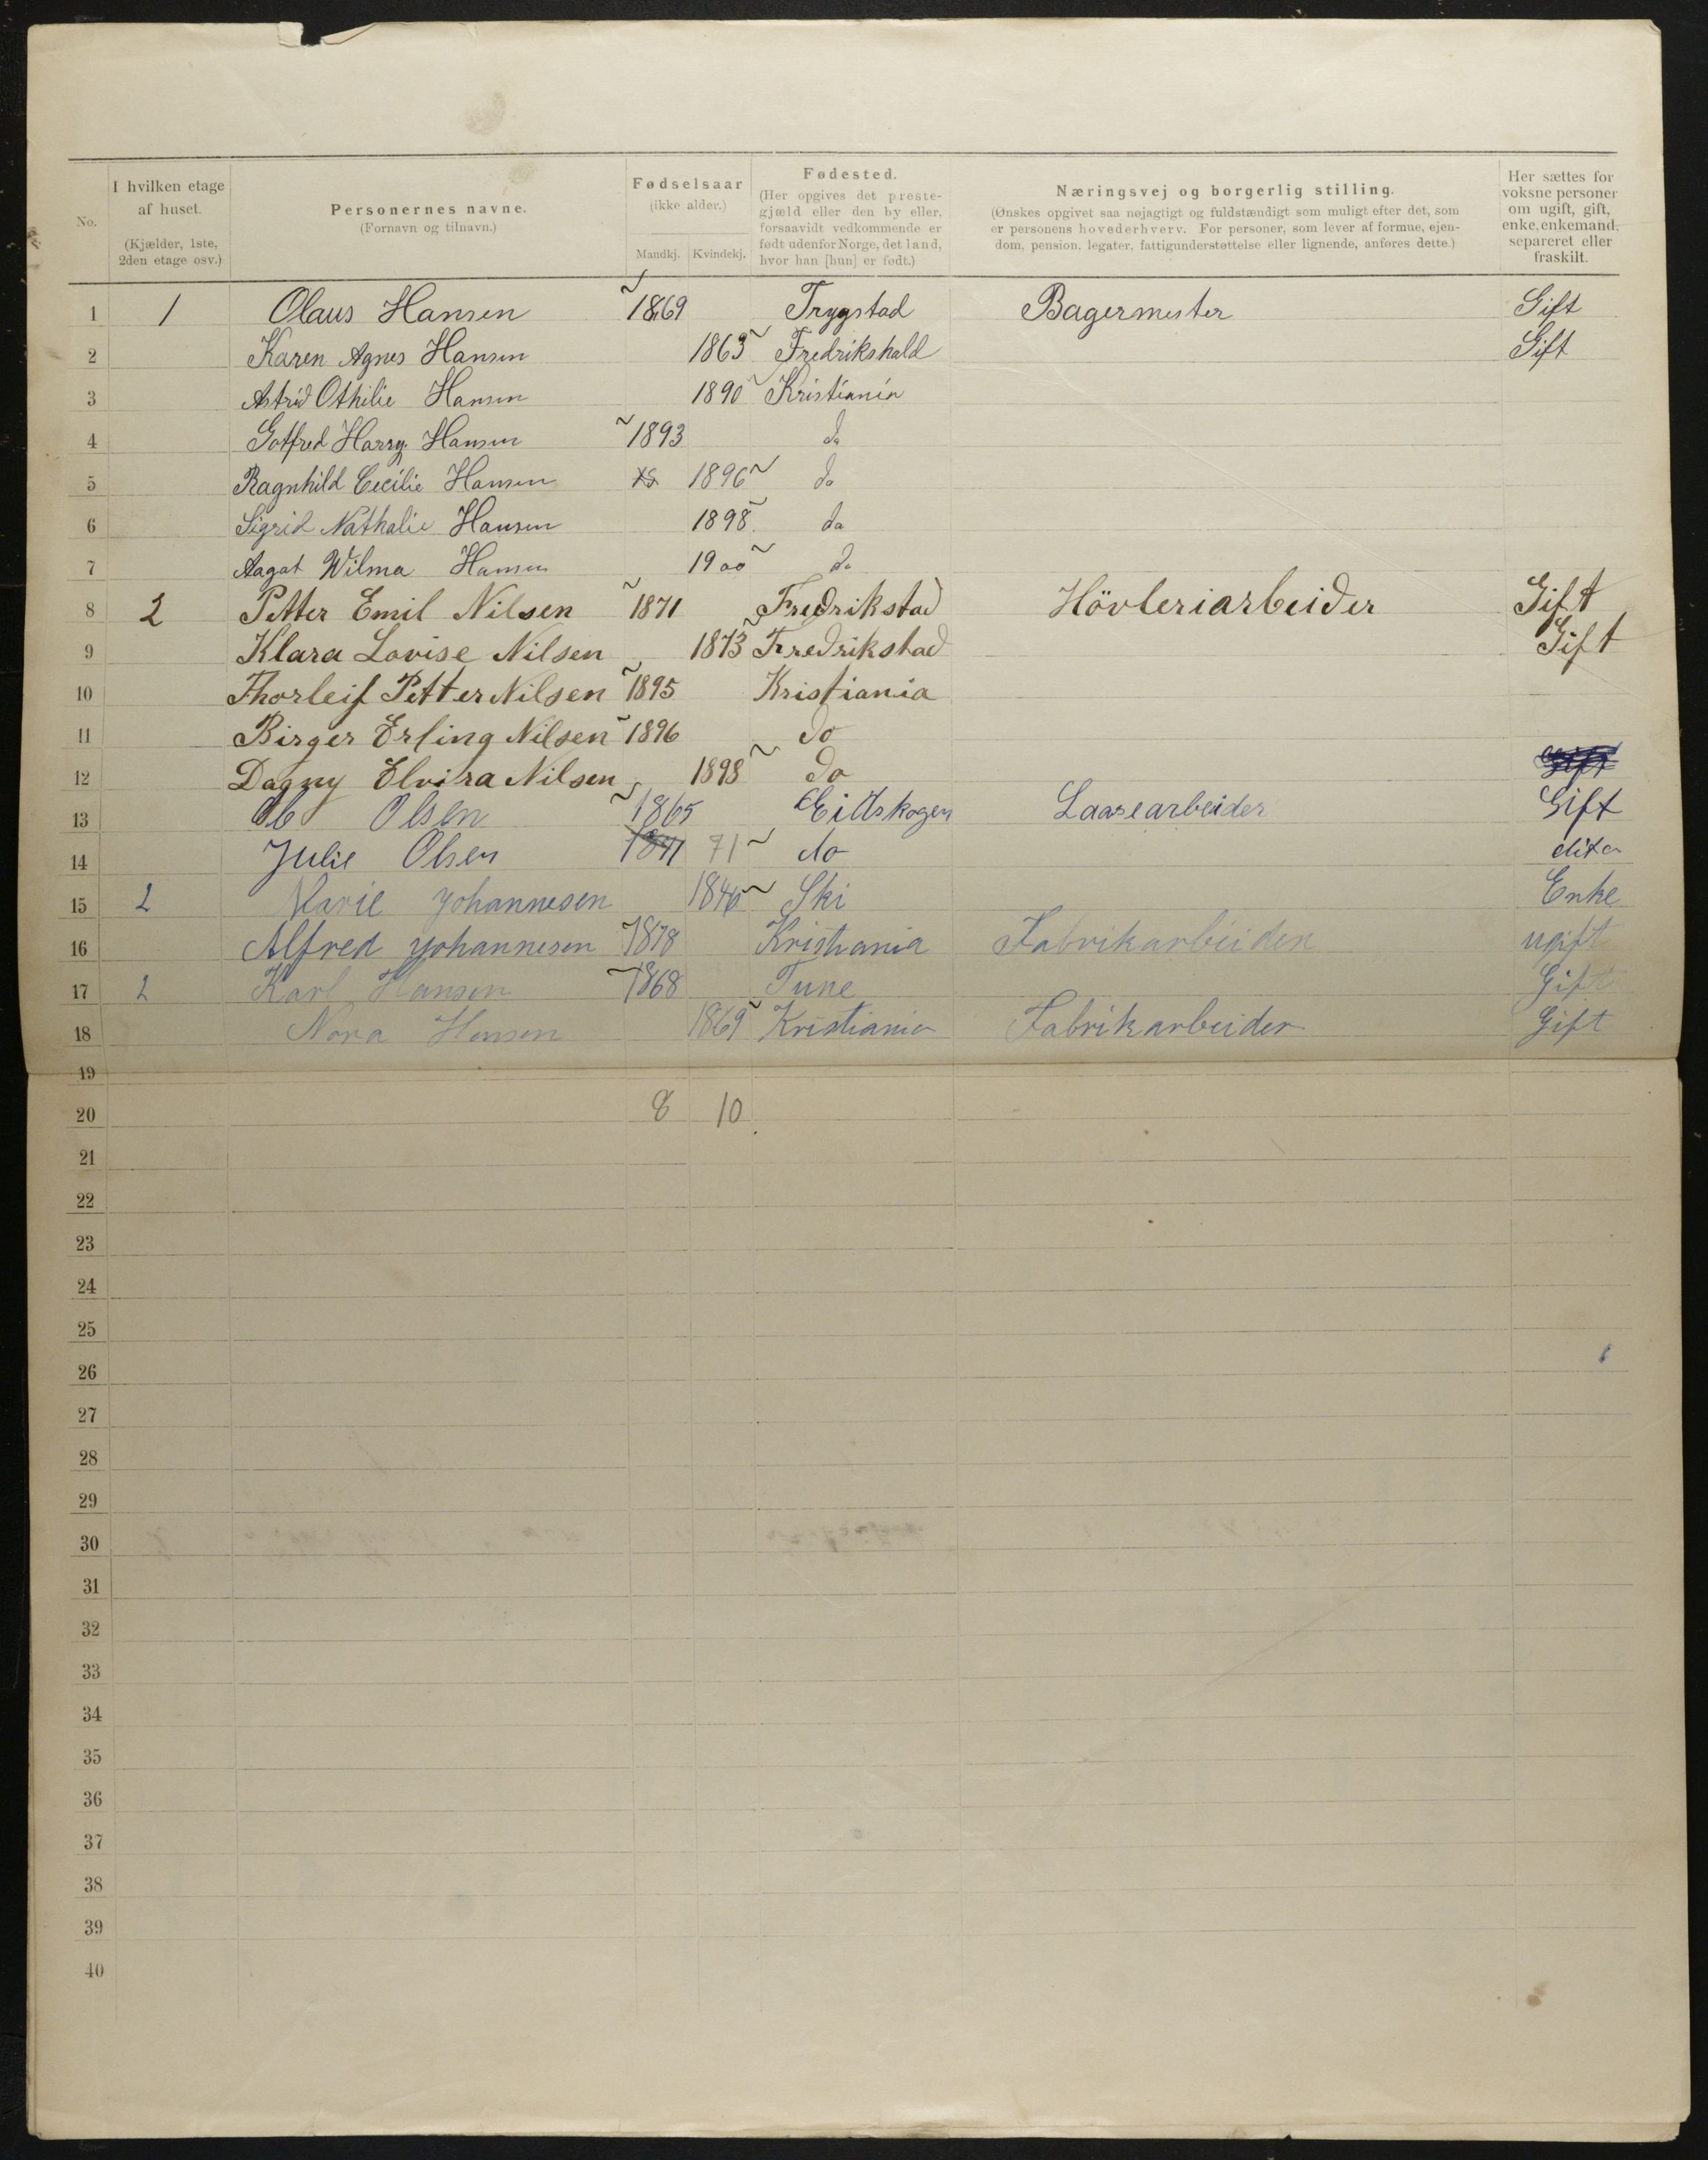 No.
I hvilken etage af huset. (Kjælder, 1ste, 2den etage osv.)
Personernes navne. (Fornavn og tilnavn.)
Fødselsaar (ikke alder.) Mandkj. Kvindekj.
Fødested. (Her opgives det preste-gjæld eller den by eller, forsaavidt vedkommende er født udenfor Norge, det land, hvor han [hun] er født.)
Næringsvej og borgerlig stilling. (Ønskes opgivet saa nøjagtigt og fuldstændigt som muligt efter det, som er personens hovederhverv. For personer, som lever af formue, ejen-dom, pension, legater, fattigunderstøttelse eller lignende, anføres dette.)
Her sættes for voksne personer om ugift, gift, enke, enkemand, separeret eller fraskilt.
1 1 Olaus Hansen 1869 Trygstad Bagermester Gift
2 Karen Agnes Hansen 1863 Fredrikshald Gift
3 Astrid Othilie Hansen 1890 Kristiania
4 Gotfred Harry Hansen 1893 do
5 Ragnhild Cecilie Hansen 1896 do
6 Sigrid Nathalie Hansen 1898 do
7 Aagot Wilma Hansen 1900 do
8 2 Petter Emil Nilsen 1871 Fredrikstad Hövleriarbeider Gift
9 Klara Lovise Nilsen 1873 Fredrikstad Gift
10 Thorleif Petter Nilsen 1895 Kristiania
11 Birger Erling Nilsen 1896 do
12 Dagny Elvira Nilsen 1898 do Gift
13 Olsen 1865 Eidskogen Laasearbeider Gift
14 Julie Olsen 1871 71 do dito
15 2 Marie Johannesen 1846 Ski Enke
16 Alfred Johannesen 1878 Kristiania Fabrikarbeider ugift
17 2 Karl Hansen 1868 Tune Gift
18 Nora Hansen 1869 Kristiania Fabrikarbeider Gift
19
20 8 10
21
22
23
24
25
26
27
28
29
30
31
32
33
34
35
36
37
38
39
40